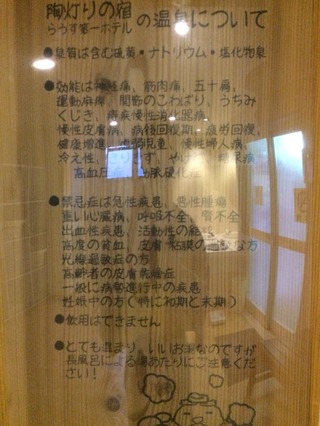 陶灯りの宿
らうす第一ホテル の温泉について
●泉質は含む硫黄・ナトリウム・塩化物泉
●効能は神経痛、筋肉痛、五十肩、
運動麻痺、関節のこわばり、うちみ
くじき、痔疾慢性消化器病、
慢性皮膚病、病後回復期・疲労回復、
健康増進、虚弱児童、慢性婦人病、
冷え性、きりきず、やけど、糖尿病
高血圧、動脈硬化症
●禁忌症は急性疾患、悪性腫瘍
重い心臓病、呼吸不全、腎不全
出血性疾患、活動性の結
高度の貧血、皮膚・粘膜の過敏な方
光線過敏症の方
高齢者の皮膚乾燥症
一般に病勢進行中の疾患
妊娠中の方(特に初期と末期)
●飲用はできません
●とても温まり、いいお湯なのですが
長風呂による湯あたりにご注意くだ
さい!